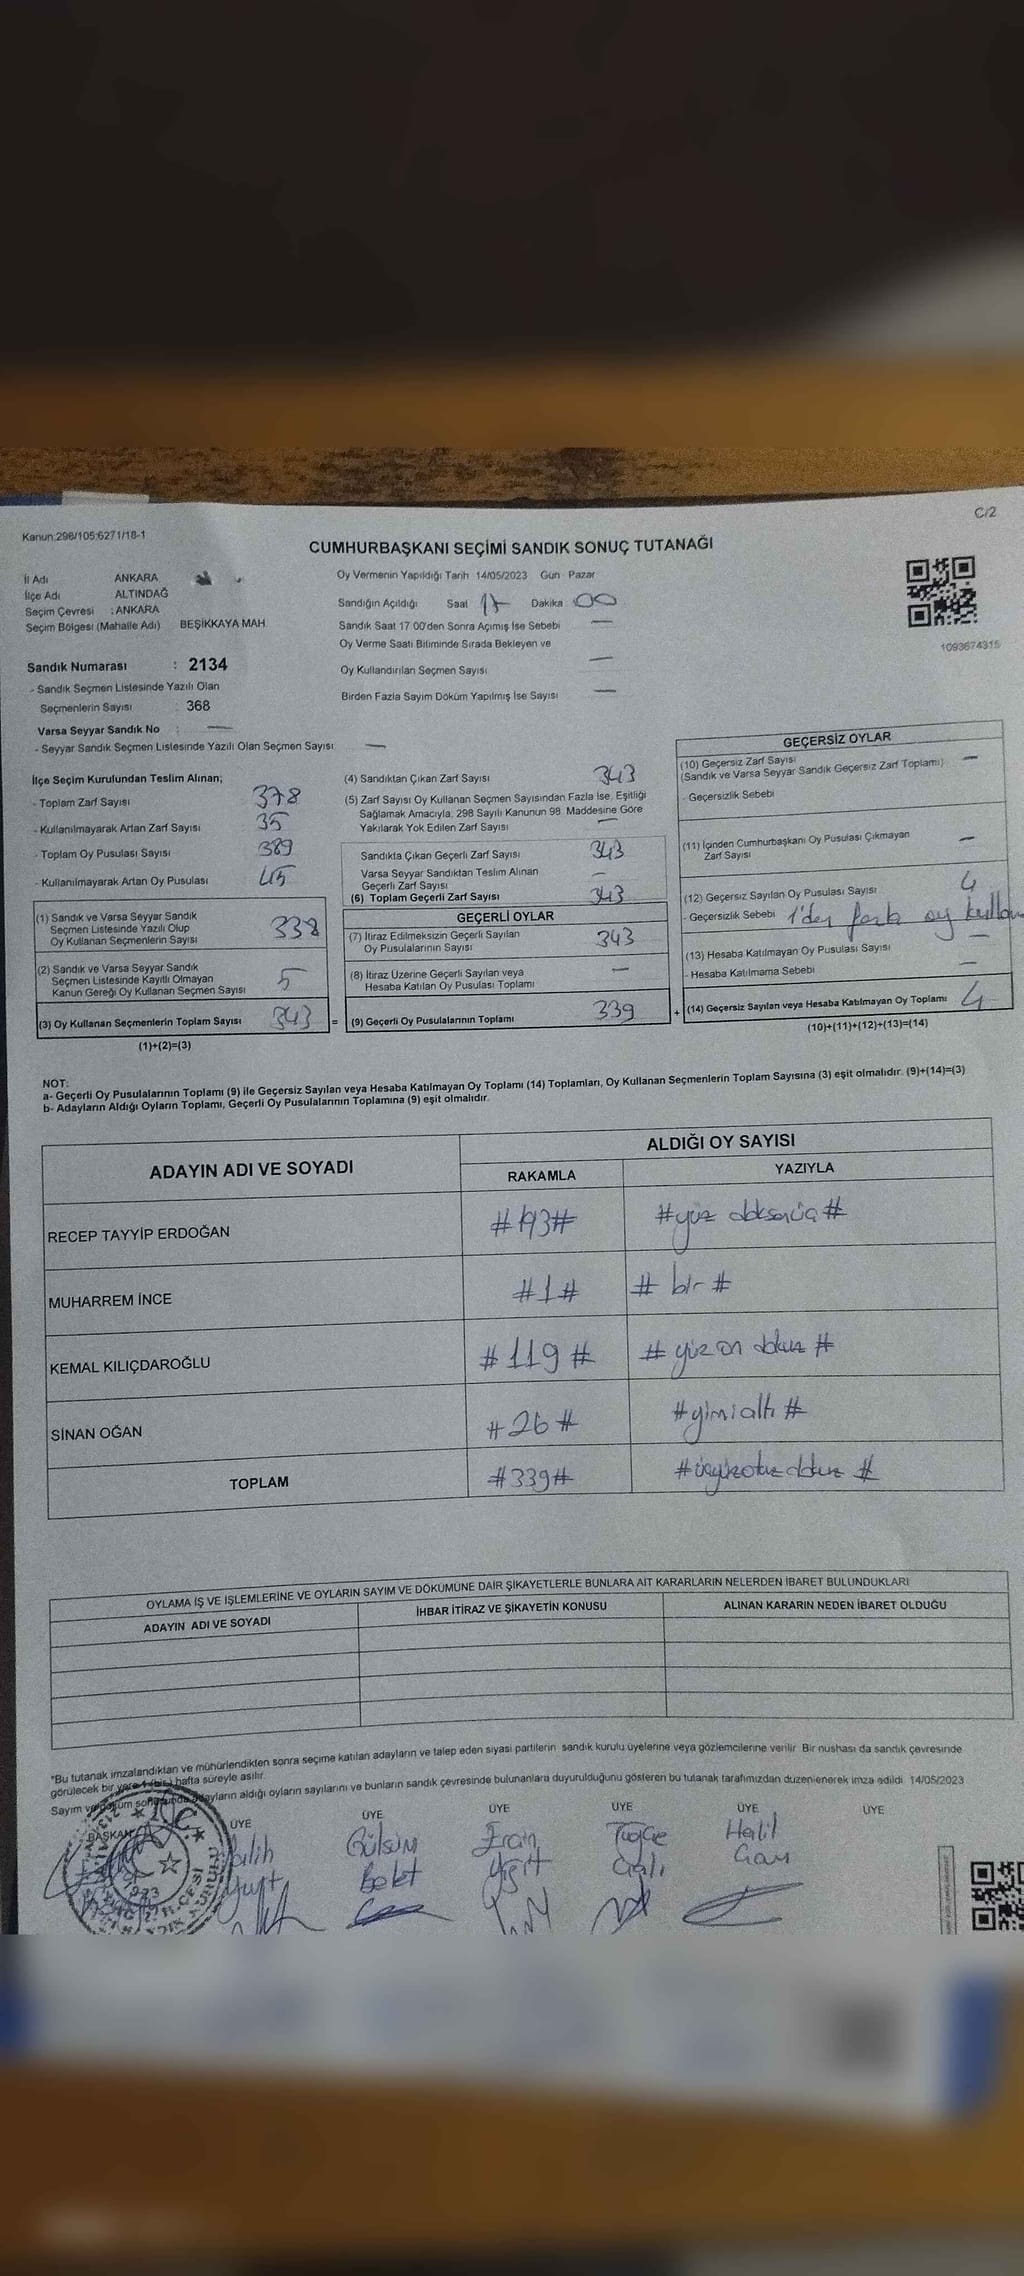 Kanun:298/105:6271/18-1
C/2
CUMHURBAŞKANI SEÇİMİ SANDIK SONUÇ TUTANAĞI
İl Adı ANKARA
İlçe Adı ALTINDAĞ
Seçim Çevresi : ANKARA
Seçim Bölgesi (Mahalle Adı) BEŞİKKAYA MAH.
Sandık Numarası : 2134
- Sandık Seçmen Listesinde Yazılı Olan
Seçmenlerin Sayısı 368
Varsa Seyyar Sandık No : —
- Seyyar Sandık Seçmen Listesinde Yazılı Olan Seçmen Sayısı —
Oy Vermenin Yapıldığı Tarih 14/05/2023 Gün Pazar
Sandığın Açıldığı Saat 17 Dakika 00
Sandık Saat 17 00'den Sonra Açımış İse Sebebi —
Oy Verme Saati Bitiminde Sırada Bekleyen ve
Oy Kullandırılan Seçmen Sayısı —
Birden Fazla Sayım Döküm Yapılmış İse Sayısı —
1093674315
İlçe Seçim Kurulundan Teslim Alınan;
- Toplam Zarf Sayısı 378
- Kullanılmayarak Artan Zarf Sayısı 35
- Toplam Oy Pusulası Sayısı 389
- Kullanılmayarak Artan Oy Pusulası 45
(1) Sandık ve Varsa Seyyar Sandık
Seçmen Listesinde Yazılı Olup
Oy Kullanan Seçmenlerin Sayısı 338
(2) Sandık ve Varsa Seyyar Sandık
Seçmen Listesinde Kayıtlı Olmayan
Kanun Gereği Oy Kullanan Seçmen Sayısı 5
(3) Oy Kullanan Seçmenlerin Toplam Sayısı 343
(1)+(2)=(3)
(4) Sandıktan Çıkan Zarf Sayısı 343
(5) Zarf Sayısı Oy Kullanan Seçmen Sayısından Fazla İse, Eşitliği
Sağlamak Amacıyla; 298 Sayılı Kanunun 98. Maddesine Göre
Yakılarak Yok Edilen Zarf Sayısı —
Sandıkta Çıkan Geçerli Zarf Sayısı 343
Varsa Seyyar Sandıktan Teslim Alınan
Geçerli Zarf Sayısı —
(6) Toplam Geçerli Zarf Sayısı 343
GEÇERLİ OYLAR
(7) İtiraz Edilmeksizin Geçerli Sayılan
Oy Pusulalarının Sayısı 343
(8) İtiraz Üzerine Geçerli Sayılan veya
Hesaba Katılan Oy Pusulası Toplamı —
= (9) Geçerli Oy Pusulalarının Toplamı 339
GEÇERSİZ OYLAR
(10) Geçersiz Zarf Sayısı —
(Sandık ve Varsa Seyyar Sandık Geçersiz Zarf Toplamı)
- Geçersizlik Sebebi
(11) İçinden Cumhurbaşkanı Oy Pusulası Çıkmayan
Zarf Sayısı —
(12) Geçersiz Sayılan Oy Pusulası Sayısı 4
- Geçersizlik Sebebi 1'den fazla oy
(13) Hesaba Katılmayan Oy Pusulası Sayısı —
- Hesaba Katılmama Sebebi —
+ (14) Geçersiz Sayılan veya Hesaba Katılmayan Oy Toplamı 4
(10)+(11)+(12)+(13)=(14)
NOT:
a- Geçerli Oy Pusulalarının Toplamı (9) ile Geçersiz Sayılan veya Hesaba Katılmayan Oy Toplamı (14) Toplamları, Oy Kullanan Seçmenlerin Toplam Sayısına (3) eşit olmalıdır. (9)+(14)=(3)
b- Adayların Aldığı Oyların Toplamı, Geçerli Oy Pusulalarının Toplamına (9) eşit olmalıdır.
ADAYIN ADI VE SOYADI ALDIĞI OY SAYISI
RAKAMLA YAZIYLA
RECEP TAYYİP ERDOĞAN #193# #yüz doksanüç#
MUHARREM İNCE #1# #bir#
KEMAL KILIÇDAROĞLU #119# #yüz on dokuz#
SİNAN OĞAN #26# #yirmialtı#
TOPLAM #339# #üçyüzotuzdokuz#
OYLAMA İŞ VE İŞLEMLERİNE VE OYLARIN SAYIM VE DÖKÜMÜNE DAİR ŞİKAYETLERLE BUNLARA AİT KARARLARIN NELERDEN İBARET BULUNDUKLARI
ADAYIN ADI VE SOYADI İHBAR İTİRAZ VE ŞİKAYETİN KONUSU ALINAN KARARIN NEDEN İBARET OLDUĞU
*Bu tutanak imzalandıktan ve mühürlendikten sonra seçime katılan adayların ve talep eden siyasi partilerin sandık kurulu üyelerine veya gözlemcilerine verilir. Bir nüshası da sandık çevresinde
görülecek bir yere 1 (bir) hafta süreyle asılır.
Sayım ve döküm adayların aldığı oyların sayılarını ve bunların sandık çevresinde bulunanlara duyurulduğunu gösteren bu tutanak tarafımızdan düzenlenerek imza edildi. 14/05/2023
BAŞKAN ÜYE ÜYE ÜYE ÜYE ÜYE ÜYE
Gülsüm Tuğçe Halil
Yiğit